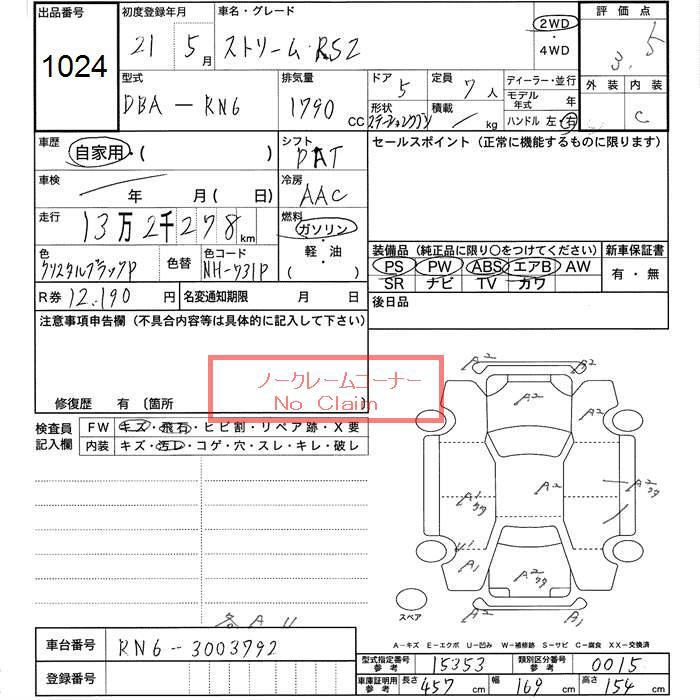 出品番号
1024
初度登録年月
21 5月
車名・グレード
ストリーム・RSZ
2WD
・
4WD
評価点
3.5
外装 内装
C
型式
DBA－RN6
排気量
1790 CC
ドア 5
形状
ステーションワゴン
定員 7人
積載 ／ kg
ディーラー・並行
モデル年式 年
ハンドル 左・右
車歴 自家用・( )
シフト
車検 年 月( 日)
冷房
AAC
走行 13万2千278km
燃料
ガソリン
・
軽・油
( )
色
クリスタルブラックP
色替
色コード
NH-731P
R券 12.190 円
名変通知期限 月 日
セールスポイント（正常に機能するものに限ります）
装備品（純正品に限り〇をつけてください）
PS PW ABS エアB AW
SR ナビ TV カワ
新車保証書
有・無
後日品
注意事項申告欄（不具合内容等は具体的に記入して下さい）
ノークレームコーナー
No Claim
修復歴 有 〔箇所
検査員記入欄
FW キズ・飛石・ヒビ割・リペア跡・X要
内装 キズ・汚レ・コゲ・穴・スレ・キレ・破レ
A2 A2
A2
A2
A1
A2
U1
A1
A2
A2 A1
スペア
A－キズ E－エクボ U－凹み W－補修跡 S－サビ C－腐食 XX－交換済
車台番号 RN6－3003792
登録番号
型式指定番号参考 15353
類別区分番号参考 0015
車庫証明用参考 長さ 457cm 幅 169cm 高さ 154cm